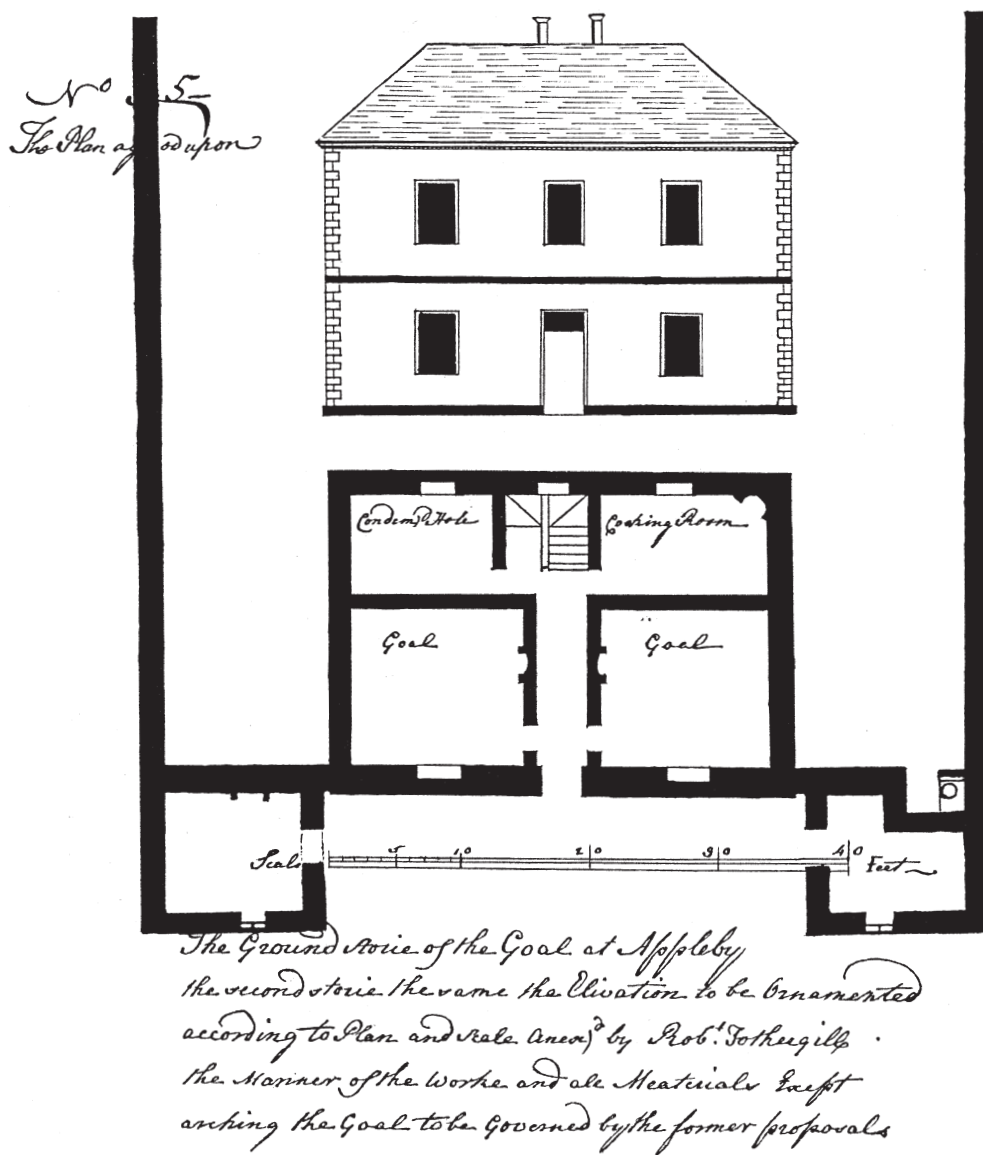 No. 5
The Plan agreed upon
Condemd Hole
Cooking Room
Goal
Goal
Scale
5
10
20
30
40
Feet
The Ground storie of the Goal at Appleby
the second storie the same the Elivation to be Ornamented
according to Plan and Scale Anexd by Robt. Fothergill
the Manner of the Worke and all Meaterials Exept
arching the Goal to be Governed by the former proposals